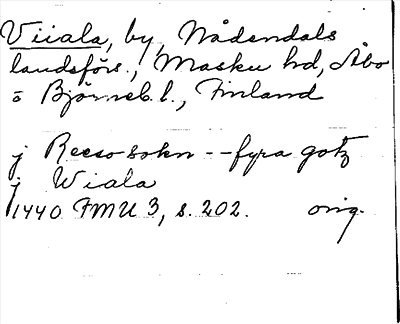 Viiala, by, Nådendals
landsförs., Masku hd, Åbo
o Björneb. l., Finland
j Reeso sokn -- fyra gotz
j Wiala
1440 FMU 3, s. 202. orig.